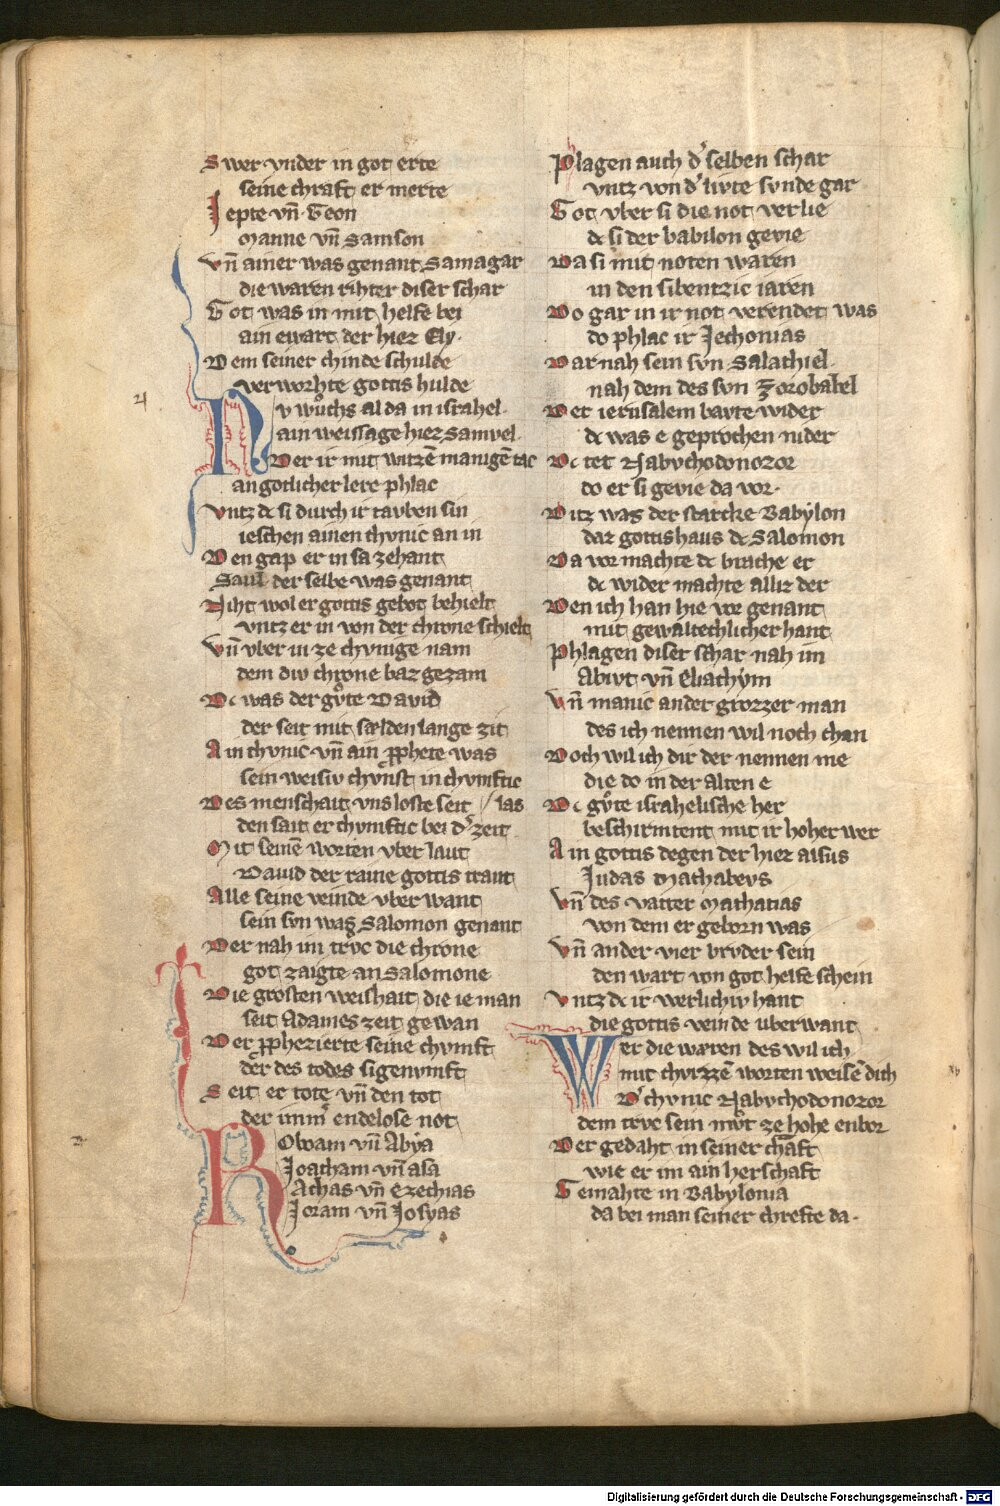 Swer vnder in got erte
seine chraft er merte
Jepte vn̄ Geon
Manne vn̄ Samson
Vn̄ ainer was genant Samagar
die waren rihter diser schar
Got was in mit helfe bei
ain ewart der hiez Ely.
Dem seiner chinde schulde
verworhte gottis hulde
Nv wůchs al da in israhel.
ain weissage hiez Samvel.
Der ir mit witzē manigē tac
an gotlicher lere phlac
Vntz dc si durch ir tavben sin
ieschen ainen chvnic an in
Den gap er in sa zehant
Saul der selbe was genant
Niht wol er gottis gebot behielt
vntz er in von der chrone schielt
Vn̄ vber in ze chvnige nam
dem div chrone baz gezam
Dc was der gůte David
der seit mit sælden lange zit
Ain chvnic vn̄ ain ꝓphete was
sein weisiv chvnst in chvnftic
Des menschait vns loste seit / las
den sait er chvnftic bei d' zeit
Mit seinē worten vber laut
Dauid der raine gottis traut
Alle seine veinde vber want
sein svn was Salomon genant
Der nah im trvc die chrone
got zaigte an Salomone
Die grosten weishait die ie man
seit Adames zeit gewan
Der ꝓphezierte seine chvnft
der des todes sigenvnft
Seit er tote vn̄ den tot
der imm' endelose not
Roboam vn̄ Abya
Joatham vn̄ asa
Achas vn̄ Ezechias
Joram vn̄ Josyas
Phlagen auch d' selben schar
vntz von d' livte svnde gar
Got vber si die not verlie
dc si der babilon gevie
Da si mit noten waren
in den sibentzic iaren
Do gar in ir not verendet was
do phlac ir Jechonias
Dar nah sein svn Salathiel.
nah dem des svn Zorobabel
Der ierusalem bavte wider
dc was e geprochen nider
Dc tet Nabvchodonozor
do er si gevie da vor.
Ditz was der starcke Babylon
daz gottishaus dc Salomon
Da vor machte dc brache er
dc wider machte alliz der
Den ich han hie vor genant
mit gewaltechlicher hant
Phlagen diser schar nah im
Abivt vn̄ Eliachym
Vn̄ manic ander grozzer man
des ich nennen wil noch chan
Doch wil ich dir der nennen me
die do in der alten e
Dc gůte israhelische her
beschirmtent mit ir hoher wer
Ain gottis degen der hiez aisus
Judas Machabeus
Vn̄ des vatter Mathatias
von dem er geborn was
Vn̄ ander vier brvder sein
den wart von got helfe schein
Vntz dc ir werlichiv hant
die gottis veinde uberwant
Wer die waren des wil ich
mit chvrzzē worten weisē dich
D' chvnic Nabvchodonozor
dem trvc sein mv̊t ze hohe enbor
Der gedaht in seiner chraft
wie er im ain herschaft
Gemahte in Babylonia
da bei man seiner chrefte da.
Digitalisierung gefördert durch die Deutsche Forschungsgemeinschaft - DFG